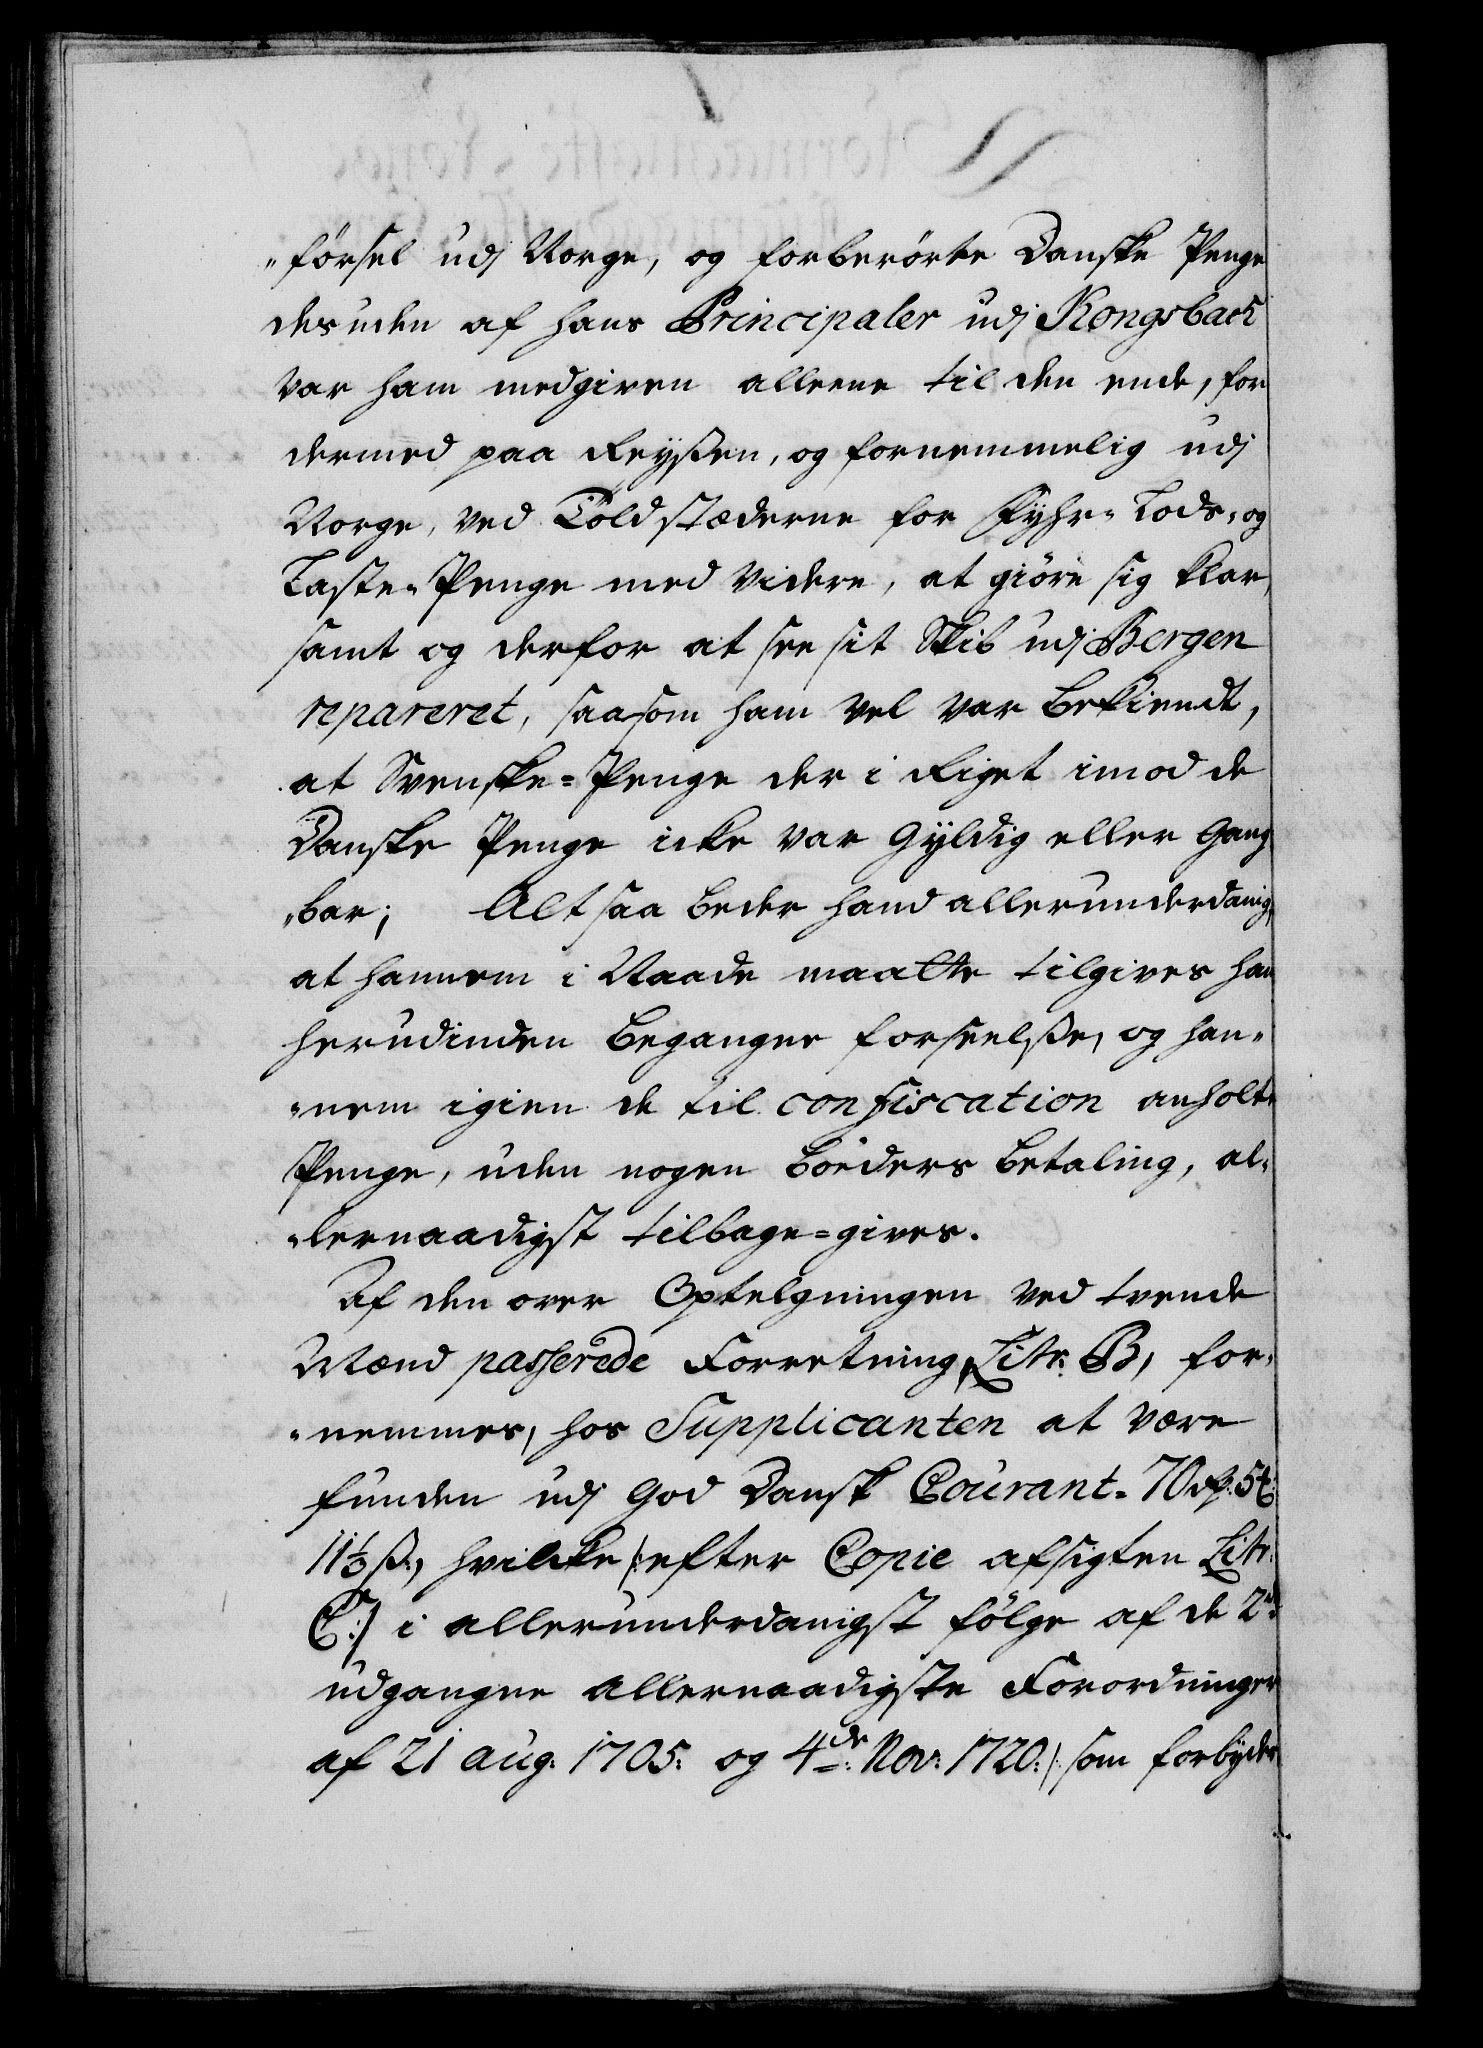 "førsel udj Norge, og forberørte Danske Penge
desuden af hans Principaler udj Kongsback
var ham medgiven alleene til den ende, for
dermed paa Reyßen, og fornemmelig udj
Norge, ved Toldstæderne for Fyhr- Lods- og
Laste-Penge med videre, at giöre sig klar,
samt og derfor at see sit Skib udj Bergen
repareret, saasom ham vel var bekiendt,
at Svenske-Penge der i Riget imod de
Danske Penge icke var gyldig eller gang
"bar; Alt saa beder hand allerunderdanigst,
at hannem i Naade maatte tilgives han
herudinden begangne forseelße, og han-
"nem igien de til confiscation anholte
Penge, uden nogen bøders betaling, al-
"lernaadigst tilbage-gives.
Af den over Optelgningen ved tvende
Mænd passerede Forretning, Litr: B, for-
"nemmes, hos Supplicanten at være
funden udj god Dansk Courant- 70 rdr: 5 t:
11½ ß:, hvilcke /: efter Copie afsigten Litr:
C:/ i allerunderdanigst følge af de 2de
udgangne allernaadigste Forordninger
af 21 aug: 1705: og 4de: Nov: 1720: /: som forbyder